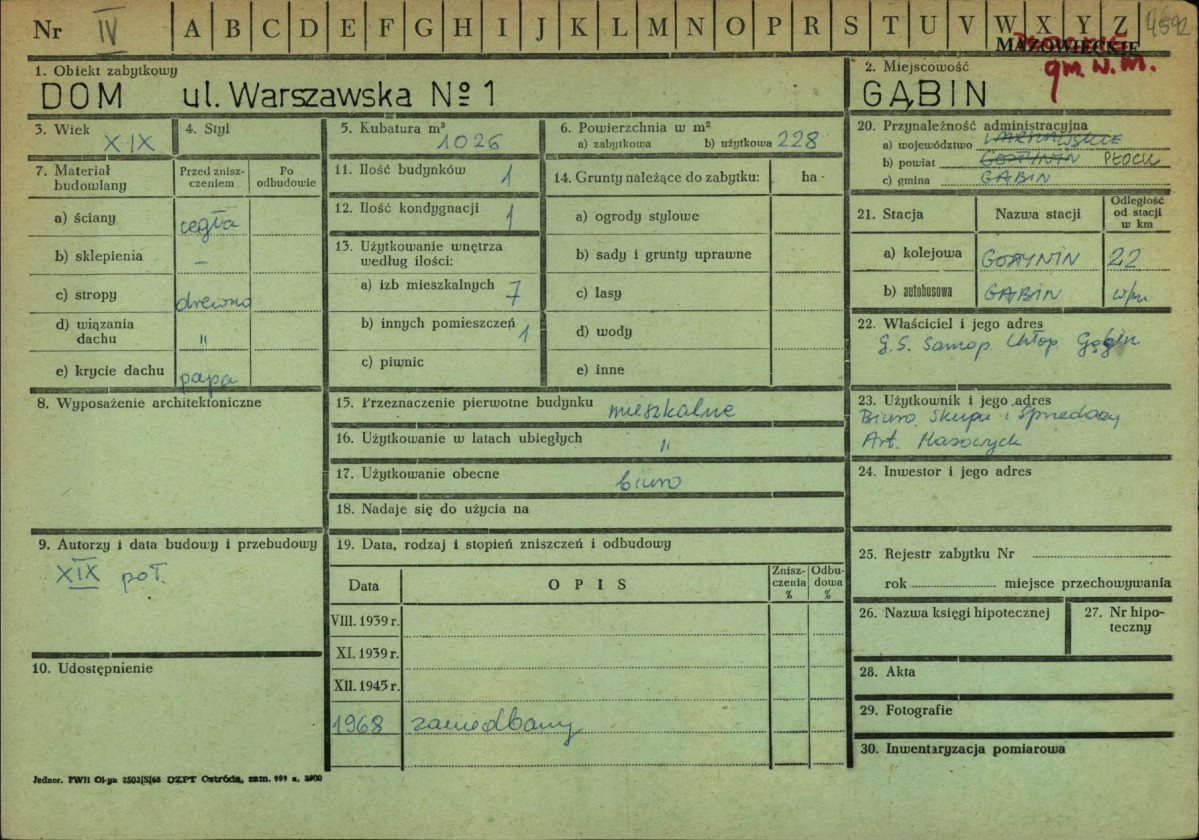 Nr IV A B C D E F G H I J K L M N O P R S T U V W X Y Z
MAZOWIECKIE
gm. N. M.
1. Obiekt zabytkowy
DOM ul. Warszawska Nº 1
2. Miejscowość
GĄBIN
3. Wiek XIX
4. Styl
5. Kubatura m³ 1026
6. Powierzchnia w m²
a) zabytkowa b) użytkowa 228
20. Przynależność administracyjna
a) województwo WARSZAWSKIE
b) powiat GOSTYNIN PŁOCK
c) gmina GĄBIN
7. Materiał budowlany
Przed zniszczeniem
Po odbudowie
a) ściany cegła
b) sklepienia –
c) stropy drewno
d) wiązania dachu "
e) krycie dachu papa
11. Ilość budynków 1
12. Ilość kondygnacji 1
13. Użytkowanie wnętrza
według ilości:
a) izb mieszkalnych 7
b) innych pomieszczeń 1
c) piwnic
14. Grunty należące do zabytku: ha
a) ogrody stylowe
b) sady i grunty uprawne
c) lasy
d) wody
e) inne
21. Stacja
Nazwa stacji
Odległość od stacji w km
a) kolejowa GOSTYNIN 22
b) autobusowa GĄBIN w/m
22. Właściciel i jego adres
G.S. Samop. Chłop. Gąbin
8. Wyposażenie architektoniczne
15. Przeznaczenie pierwotne budynku mieszkalne
16. Użytkowanie w latach ubiegłych "
17. Użytkowanie obecne biuro
18. Nadaje się do użycia na
23. Użytkownik i jego adres
Biuro Skupu i Sprzedaży
Art. Masowych
24. Inwestor i jego adres
9. Autorzy i data budowy i przebudowy
XIX poł.
10. Udostępnienie
19. Data, rodzaj i stopień zniszczeń i odbudowy
Data
OPIS
Zniszczenia %
Odbudowa %
VIII. 1939 r.
XI. 1939 r.
XII. 1945 r.
1968 zaniedbany
25. Rejestr zabytku Nr
rok miejsce przechowywania
26. Nazwa księgi hipotecznej
27. Nr hipoteczny
28. Akta
29. Fotografie
30. Inwentaryzacja pomiarowa